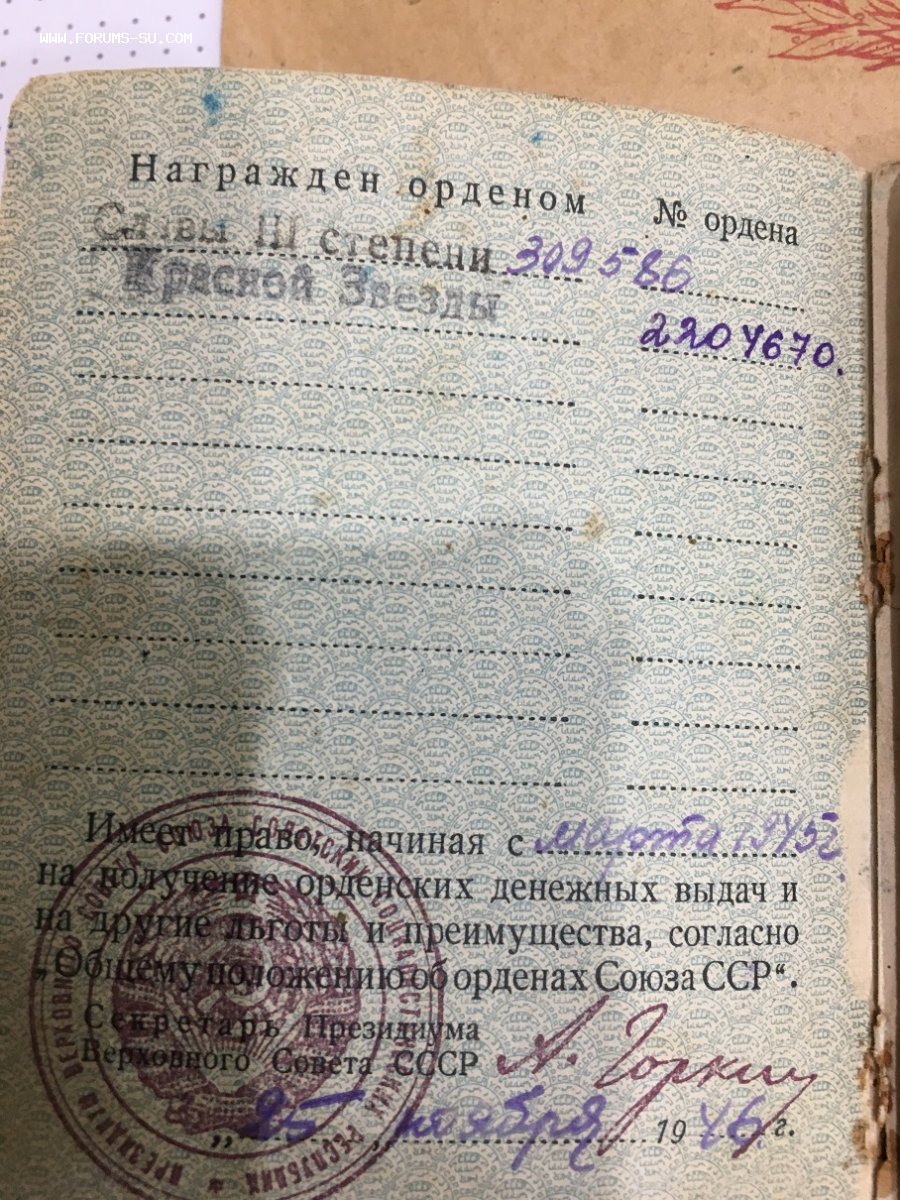 WWW.FORUMS-SU.COM
Награжден орденом № ордена
Славы III степени 309586
Красной Звезды 2204670.
Имеет право, начиная с марта 1945 г.
на получение орденских денежных выдач и
на другие льготы и преимущества, согласно
„Общему положению об орденах Союза ССР“.
Секретарь Президиума
Верховного Совета СССР А. Горкин
„25“ ноября 1946 г.
ПРЕЗИДИУМ ВЕРХОВНОГО СОВЕТА СОЮЗА СОВЕТСКИХ СОЦИАЛИСТИЧЕСКИХ РЕСПУБЛИК